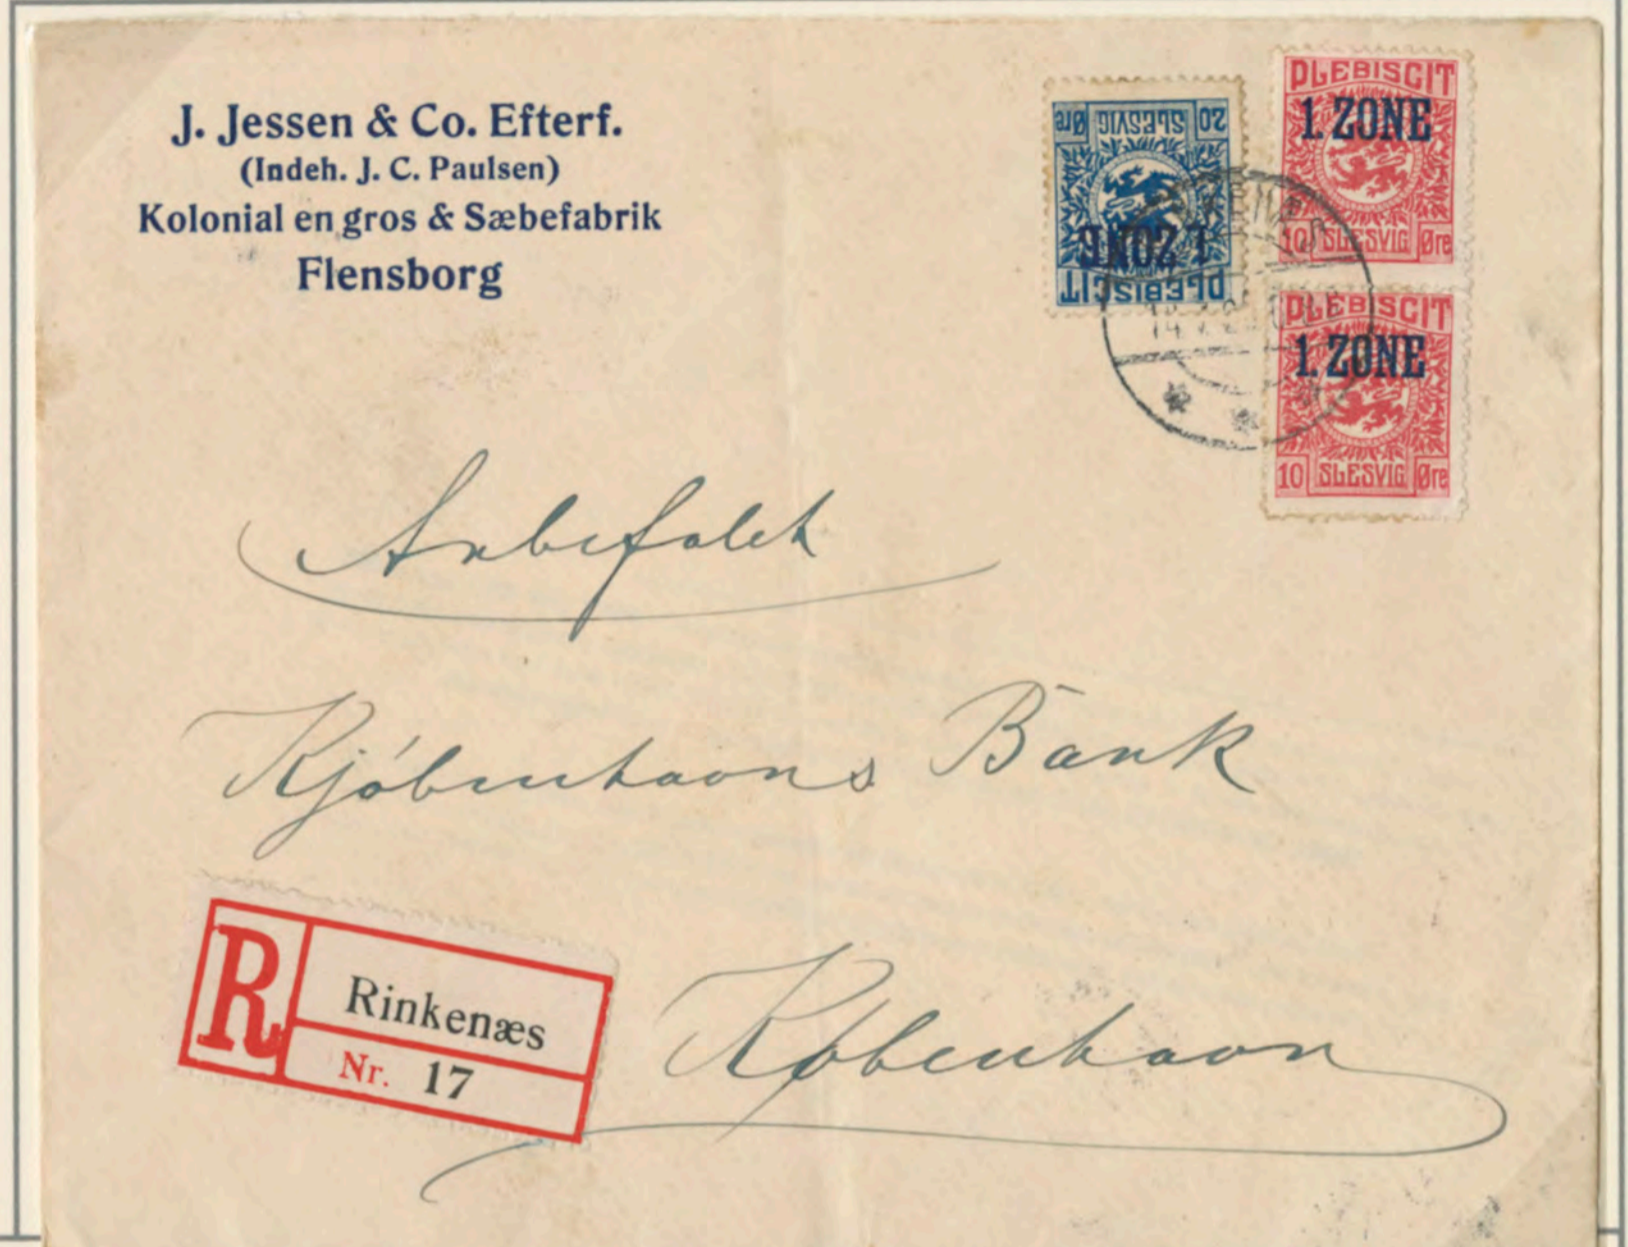 J. Jessen & Co. Efterf.
(Indeh. J. C. Paulsen)
Kolonial en gros & Sæbefabrik
Flensborg
20 SLESVIG Øre
1. ZONE
PLEBISCIT
PLEBISCIT
1. ZONE
10 SLESVIG Øre
PLEBISCIT
1. ZONE
10 SLESVIG Øre
Anbefalet
Kjóbenhavns Bank
R
Rinkenæs
Nr. 17
København